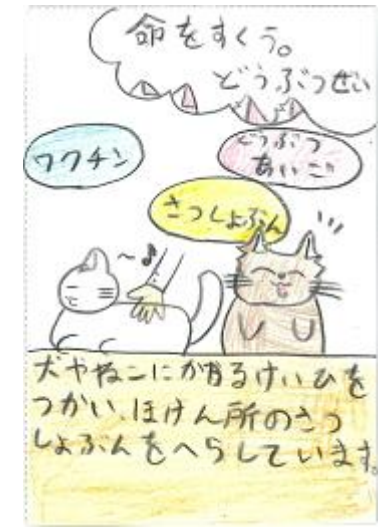 命をすくう。
どうぶつぜい
ワクチン
どうぶつ
あいご
さつしょぶん
犬やねこにかかるけいひを
つかい、ほけん所のさつ
しょぶんをへらしています。